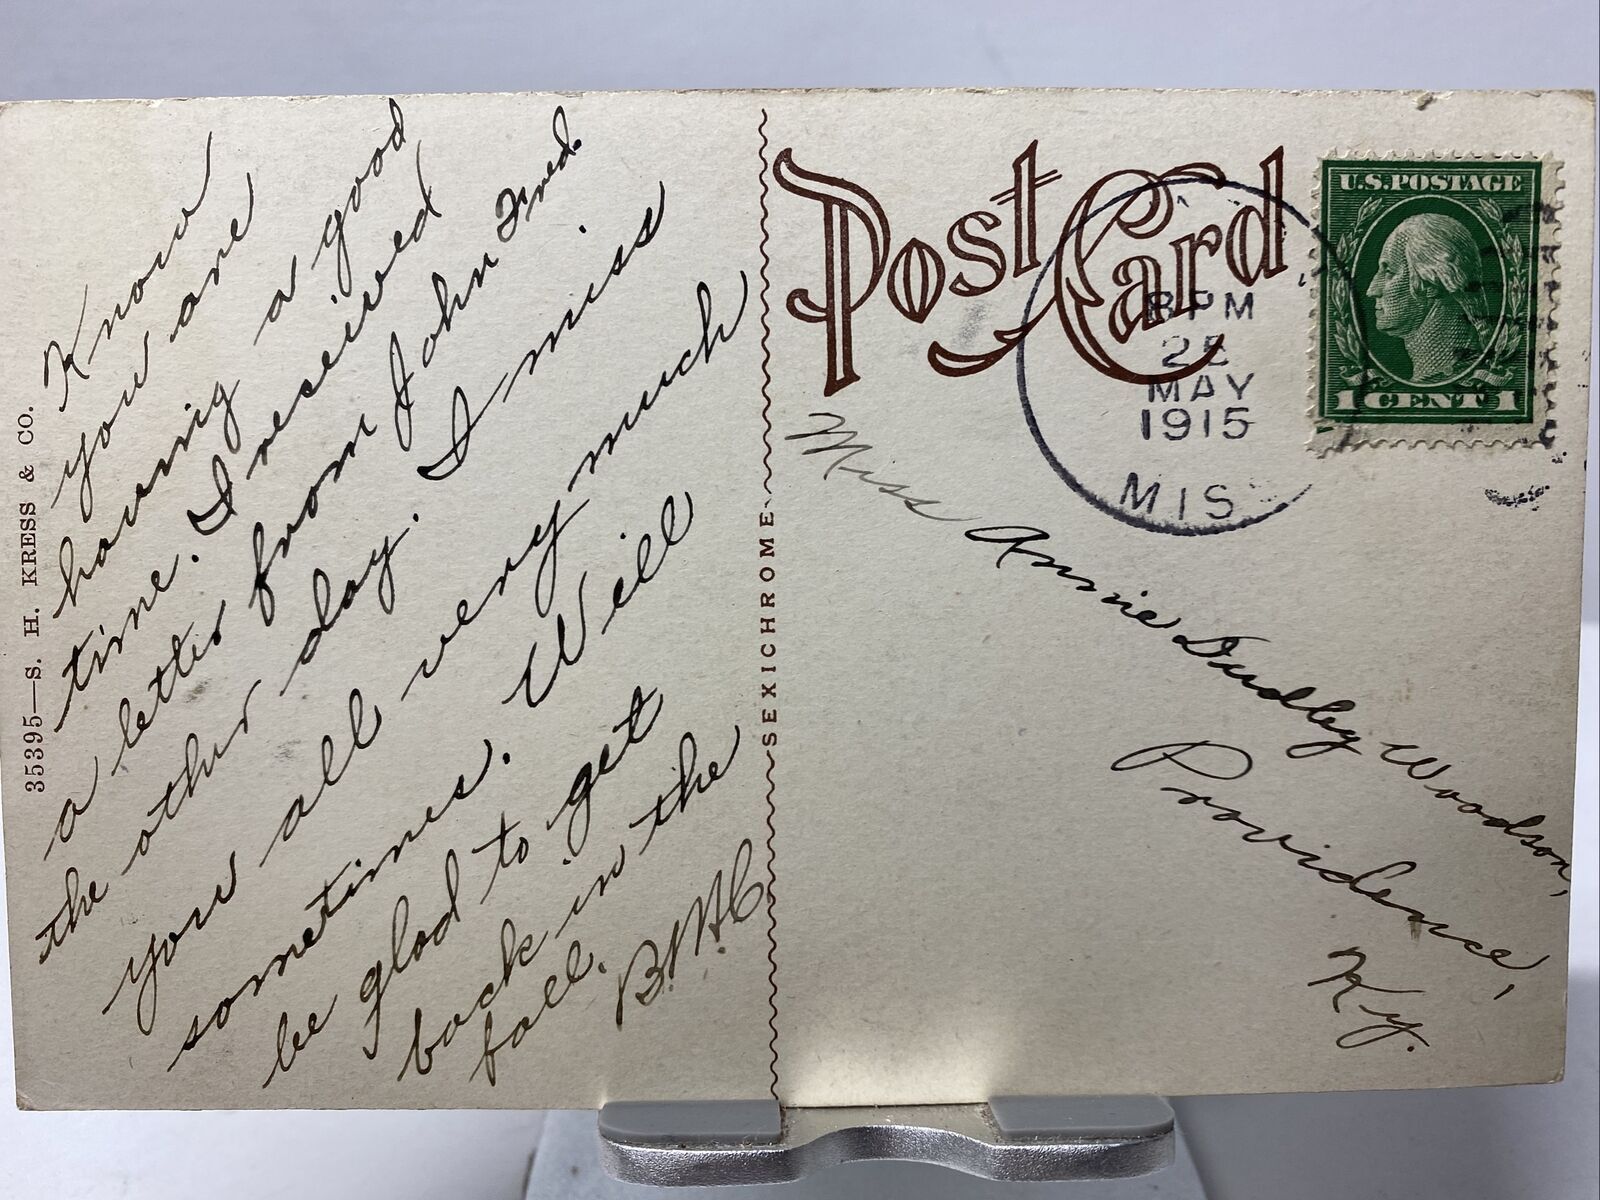 Know
you are
having a good
time. I received
a letter from John Fred.
the other day. I miss
you all very much
sometimes. Will
be glad to get
back in the
fall.
35395—S. H. KRESS & CO.
SEXICHROME
Post Card
8 PM
MAY
1915
MIS
U.S.POSTAGE
1 CENT 1
Miss Annie Dudley Woodson,
Providence,
Ky.